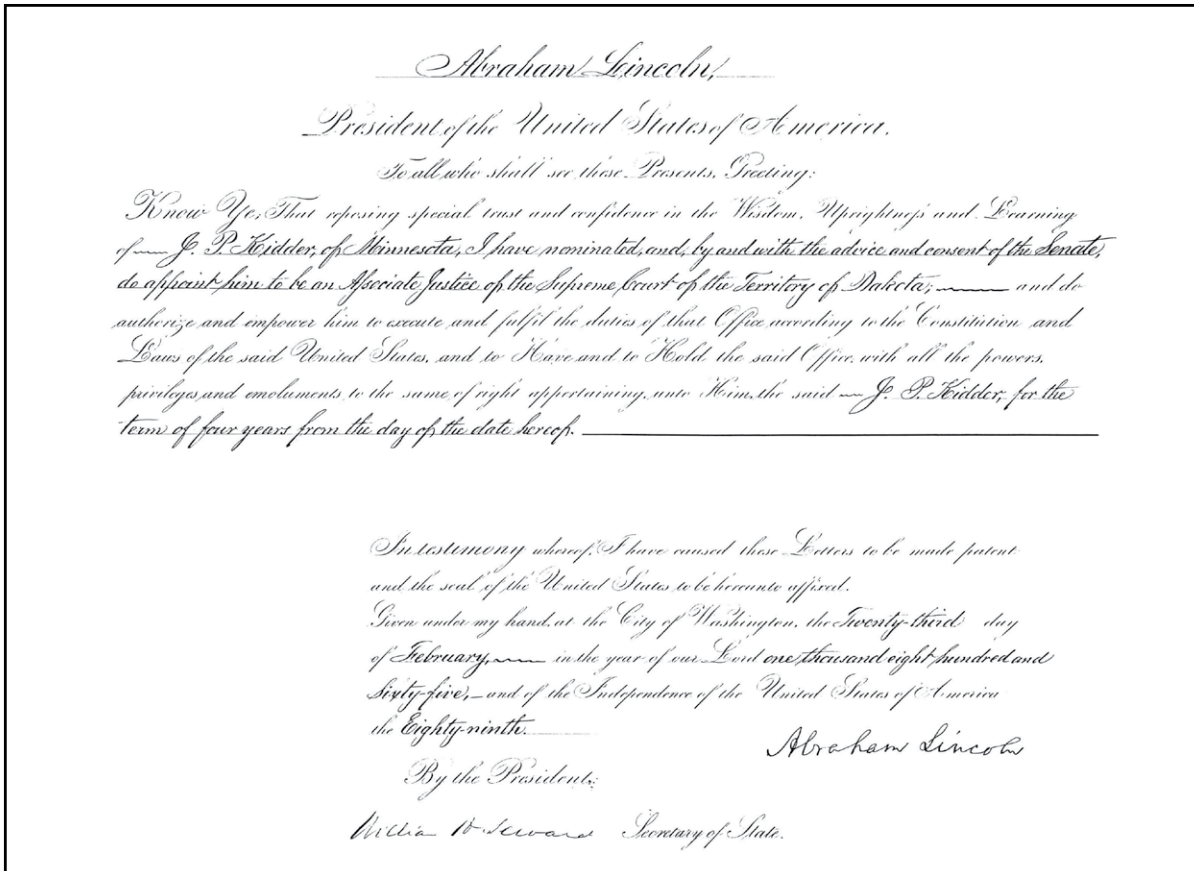 Abraham Lincoln,
President of the United States of America.
To all who shall see these Presents, Greeting:
Know Ye, That reposing special trust and confidence in the Wisdom, Uprightness and Learning
of J. P. Kidder, of Minnesota, I have nominated, and, by and with the advice and consent of the Senate,
do appoint him to be an Associate Justice of the Supreme Court of the Territory of Dakota; and do
authorize and empower him to execute and fulfil the duties of that Office according to the Constitution and
Laws of the said United States, and to Have and to Hold the said Office, with all the powers,
privileges and emoluments to the same of right appertaining, unto Him, the said J. P. Kidder, for the
term of four years from the day of the date hereof.
In testimony whereof, I have caused these Letters to be made patent
and the seal of the United States to be hereunto affixed.
Given under my hand, at the City of Washington, the Twenty-third day
of February, in the year of our Lord one thousand eight hundred and
Sixty-five, and of the Independence of the United States of America
the Eighty-ninth.
Abraham Lincoln
By the President:
William H. Seward Secretary of State.